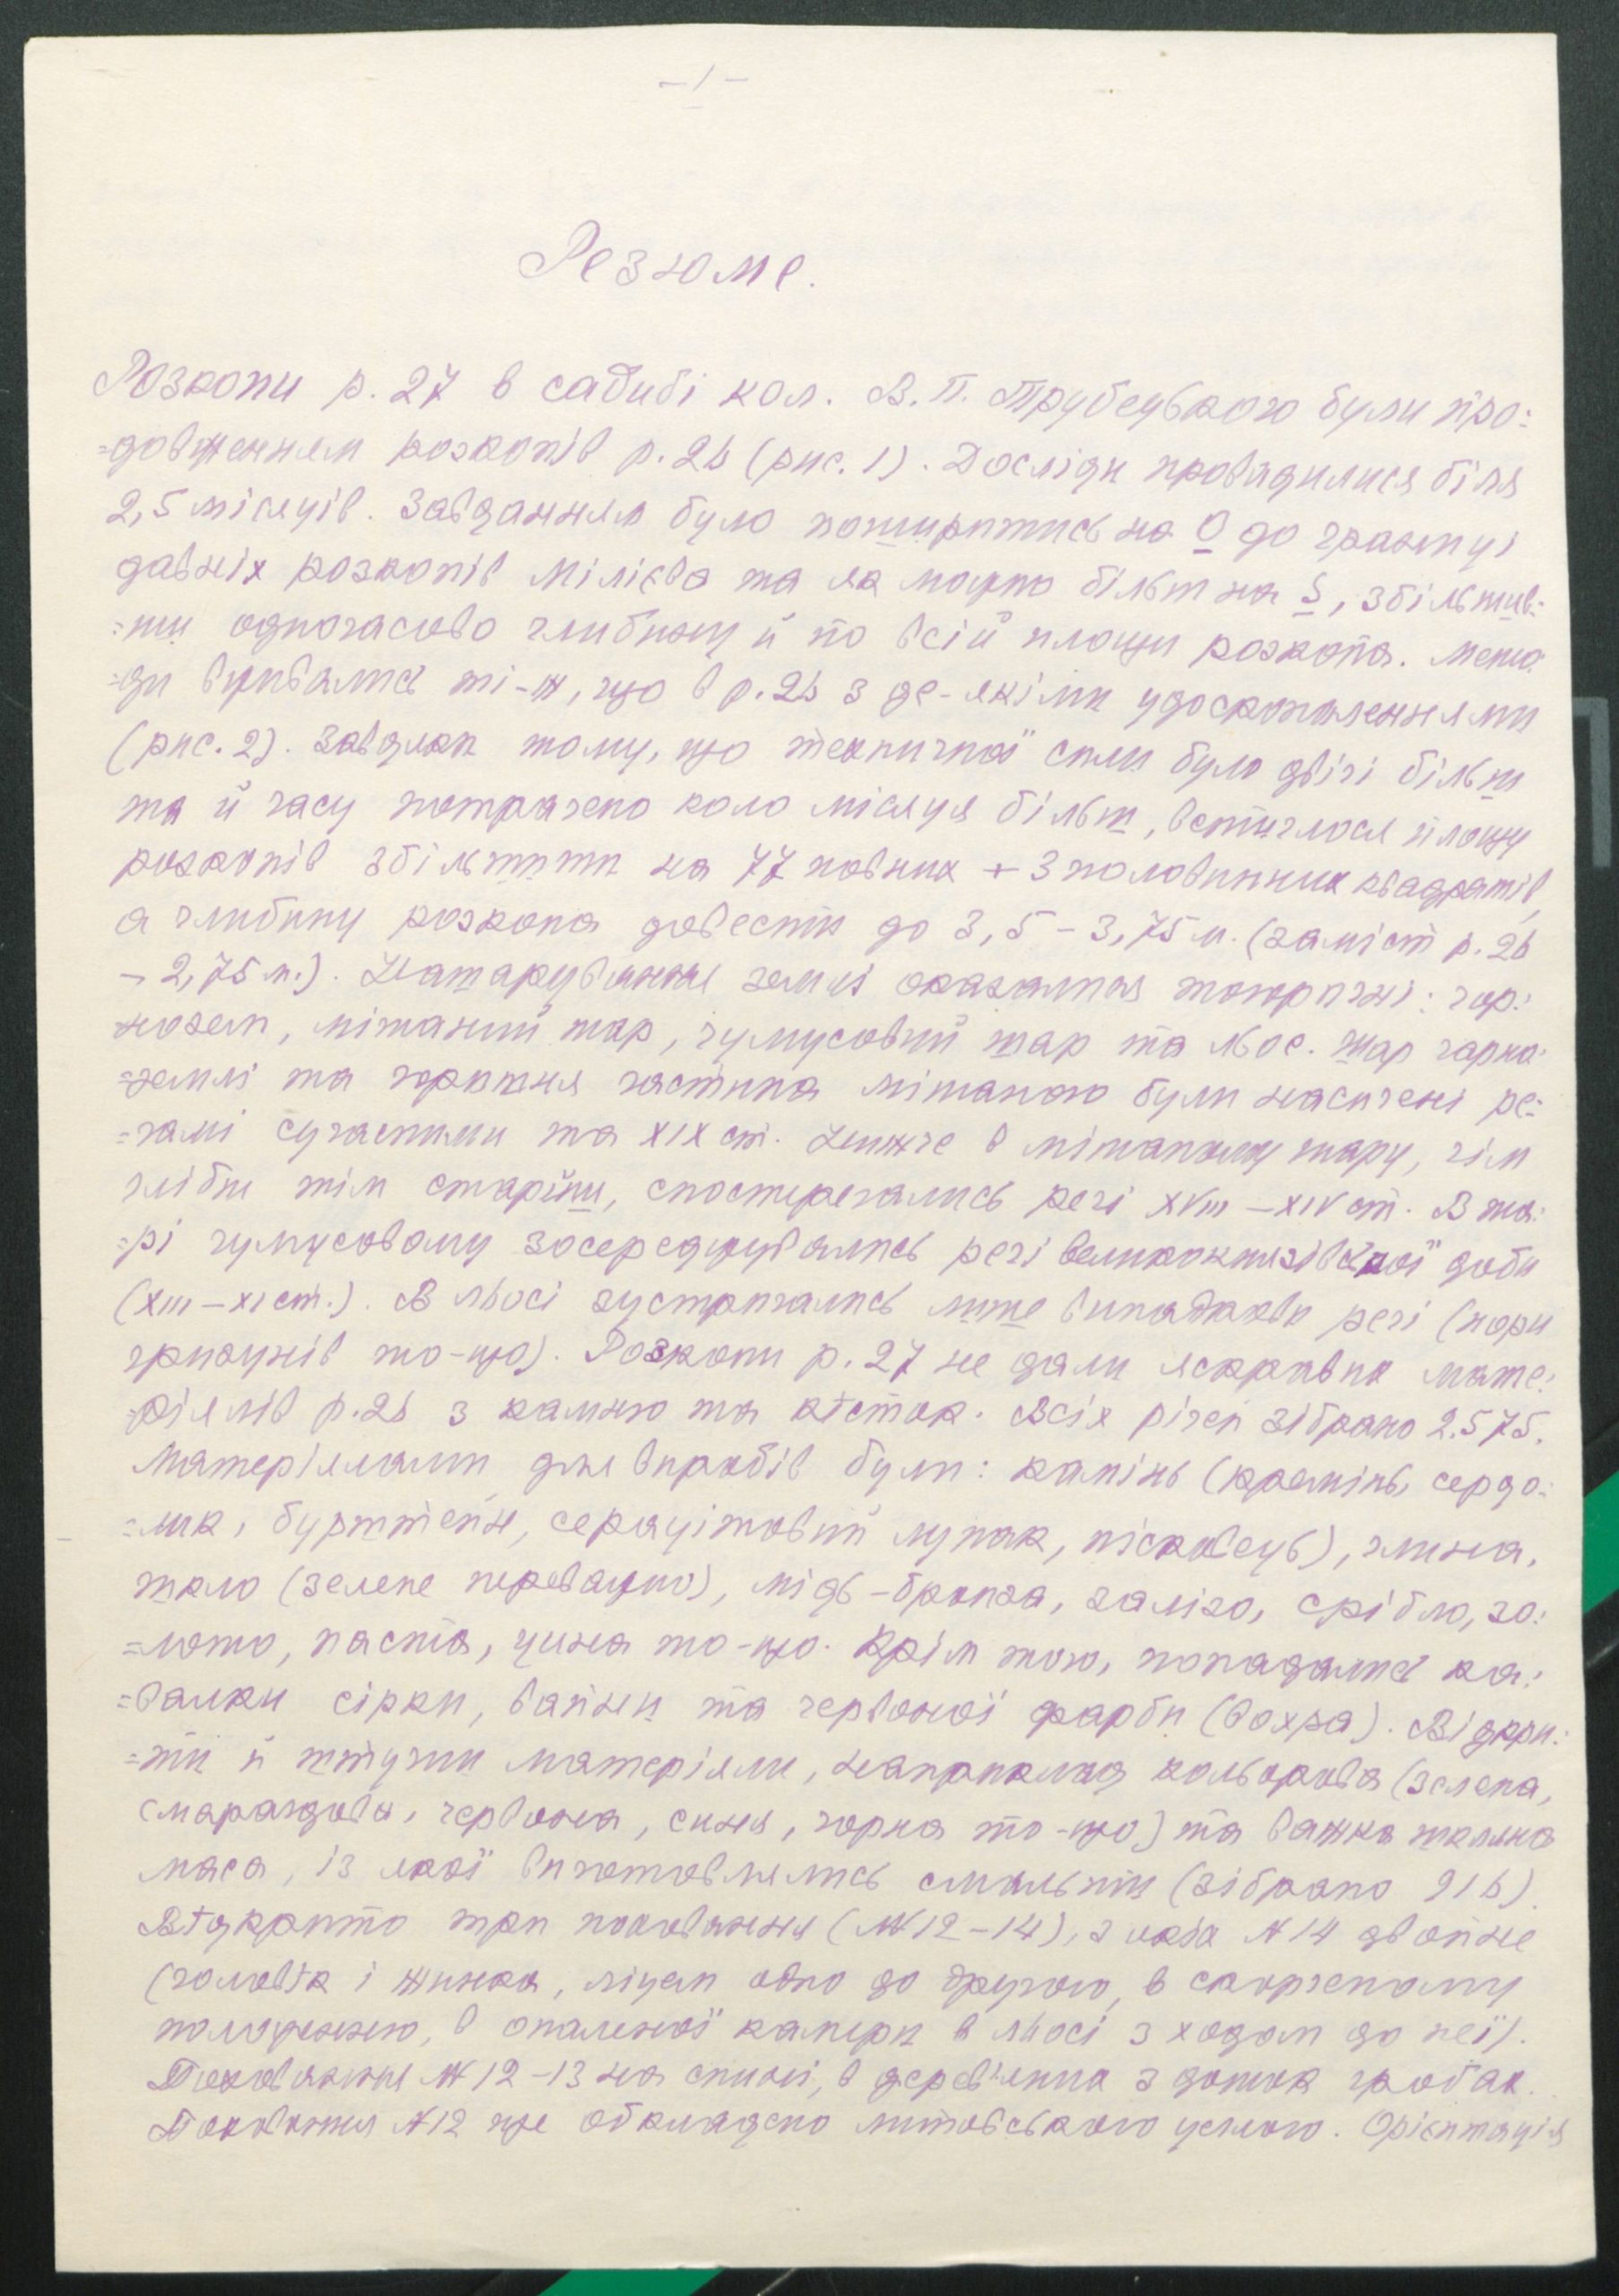 -1-
Резюме.
Розкопи р. 27 в садибі кол. В. П. Трубецького були про:
=довженням розкопів р. 26 (рис. 1). Досліди провадилися біля
2,5 місяців. Завданням було поширитись на О до границі
давніх розкопів Мілієва та як мога більш на S, збільшив:
=ши одночасово глибину й по всій площи розкопа. Мето:
=ди вживались ті-ж, що в р. 26 з де-якіми удосконаленнями
(рис. 2). Завдяки тому, що техничної сили було двічі більш
та й часу потрачено коло місяця більш, встиглося площу
розкопів збільшити на 77 повних + 3 половинних квадратів,
а глибину розкопа довести до 3,5 - 3,75 м. (заміст р. 26
- 2,75 м.). Нашарування землі оказалися тогорічні: чор:
нозем, мішаний шар, гумусовий шар та льос. Шар чорно:
=землі та горішня частина мішаного були насичені ре:
=чамі сучасними та XIX ст. Нижче в мішаному шару, чім
глібш тім старіши, спостерегались речі XVIII - XIV ст. В ша:
=рі гумусовому зосереджувались речі великокнязівської доби
(XIII - XI ст.). В льосі зустрічались лише випадкові речі (нори
гризунів то-що). Розкопи р. 27 не дали яскравих мате:
=ріялів р. 26 з каменю та кісток. Всіх річей зібрано 2.575.
Матеріялами для виробів були: камінь (кремінь, сердо:
=лик, бурштейн, серацітовий лупак, пісковець), глина,
шкло (зелене переважно), мідь-бронза, залізо, срібло, зо:
=лото, паста, цина то-що. Крім того, попадались ка:
=валки сірки, вапни та червоної фарби (вохра). Відкри:
=ти й штучни матеріяли, наприклад кольорова (зелена,
смарагдова, червона, синя, чорна то-що) та важка шкляна
маса, із якої виготовлялись смальти (зібрано 916).
Відкрито три поховання (№ 12-14), з яких № 14 двойне
(чоловік і жинка, ліцем одно до другого, в скорченому
положенню, в опаленої камери в льосі з ходом до неї).
Поховання № 12-13 на спині, в дерев'яних з дошок гробах.
Поховання № 12 ще обкладено литовського цеглою. Орієнтація